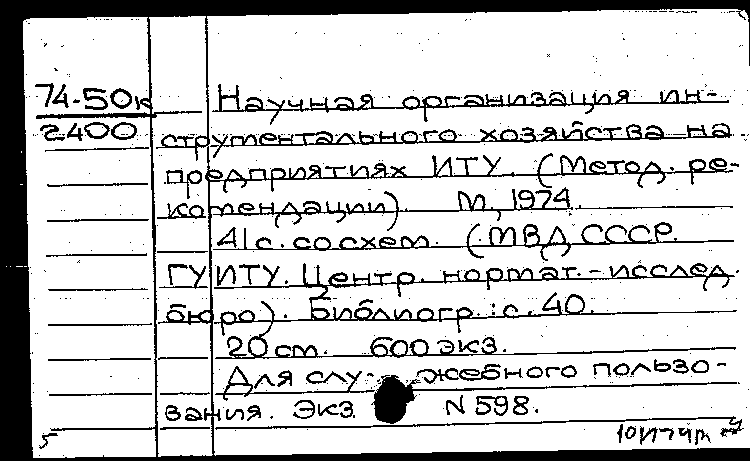 74-50к
2400
Научная организация ин-
струментального хозяйства на
предприятиях ИТУ. (Метод. ре-
комендации). М., 1974.
41 с. со схем. (МВД СССР.
ГУИТУ. Центр. нормат.-исслед.
бюро). Библиогр.: с. 40.
20 см. 600 экз.
Для слу- жебного пользо-
вания. Экз. N 598.
5